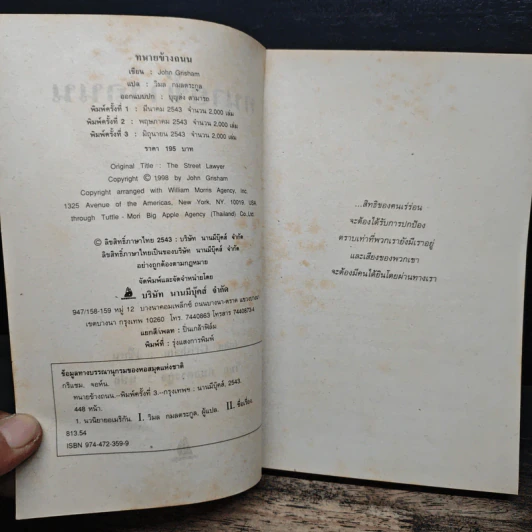 ทนายข้างถนน
เขียน : John Grisham
แปล : วิมล กมลตระกูล
ออกแบบปก : บุญส่ง สามารถ
พิมพ์ครั้งที่ 1 : มีนาคม 2543 จำนวน 2,000 เล่ม
พิมพ์ครั้งที่ 2 : พฤษภาคม 2543 จำนวน 2,000 เล่ม
พิมพ์ครั้งที่ 3 : มิถุนายน 2543 จำนวน 2,000 เล่ม
ราคา 195 บาท
Original Title : The Street Lawyer
Copyright © 1998 by John Grisham
Copyright arranged with William Morris Agency, Inc.
1325 Avenue of the Americas, New York, NY. 10019, USA.
through Tuttle - Mori Big Apple Agency (Thailand) Co.,Ltd.
© ลิขสิทธิ์ภาษาไทย 2543 : บริษัท นานมีบุ๊คส์ จำกัด
ลิขสิทธิ์ภาษาไทยเป็นของบริษัท นานมีบุ๊คส์ จำกัด
อย่างถูกต้องตามกฎหมาย
จัดพิมพ์และจัดจำหน่ายโดย
บริษัท นานมีบุ๊คส์ จำกัด
947/158-159 หมู่ 12 บางนาคอมเพล็กซ์ ถนนบางนา-ตราด แขวงบางนา
เขตบางนา กรุงเทพ 10260 โทร. 7440863 โทรสาร 7440873-4
แยกสี/เพลท : ปิ่นเกล้าฟิล์ม
พิมพ์ที่ : รุ่งแสงการพิมพ์
ข้อมูลทางบรรณานุกรมของหอสมุดแห่งชาติ
กริแชม, จอห์น.
ทนายข้างถนน.--พิมพ์ครั้งที่ 3.--กรุงเทพฯ : นานมีบุ๊คส์, 2543.
448 หน้า.
1. นวนิยายอเมริกัน. I. วิมล กมลตระกูล, ผู้แปล. II. ชื่อเรื่อง.
813.54
ISBN 974-472-359-9
...สิทธิของคนเร่ร่อน
จะต้องได้รับการปกป้อง
ตราบเท่าที่พวกเรายังมีเราอยู่
และเสียงของพวกเขา
จะต้องมีคนได้ยินโดยผ่านทางเรา